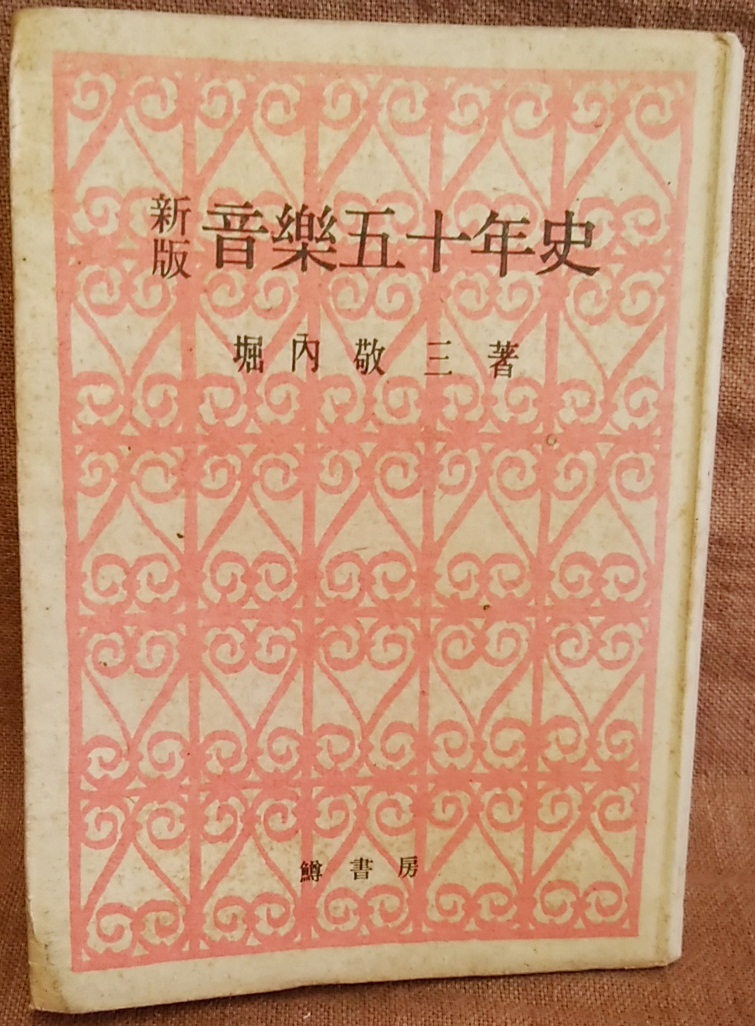 新版 音樂五十年史
堀內敬三著
鱒書房